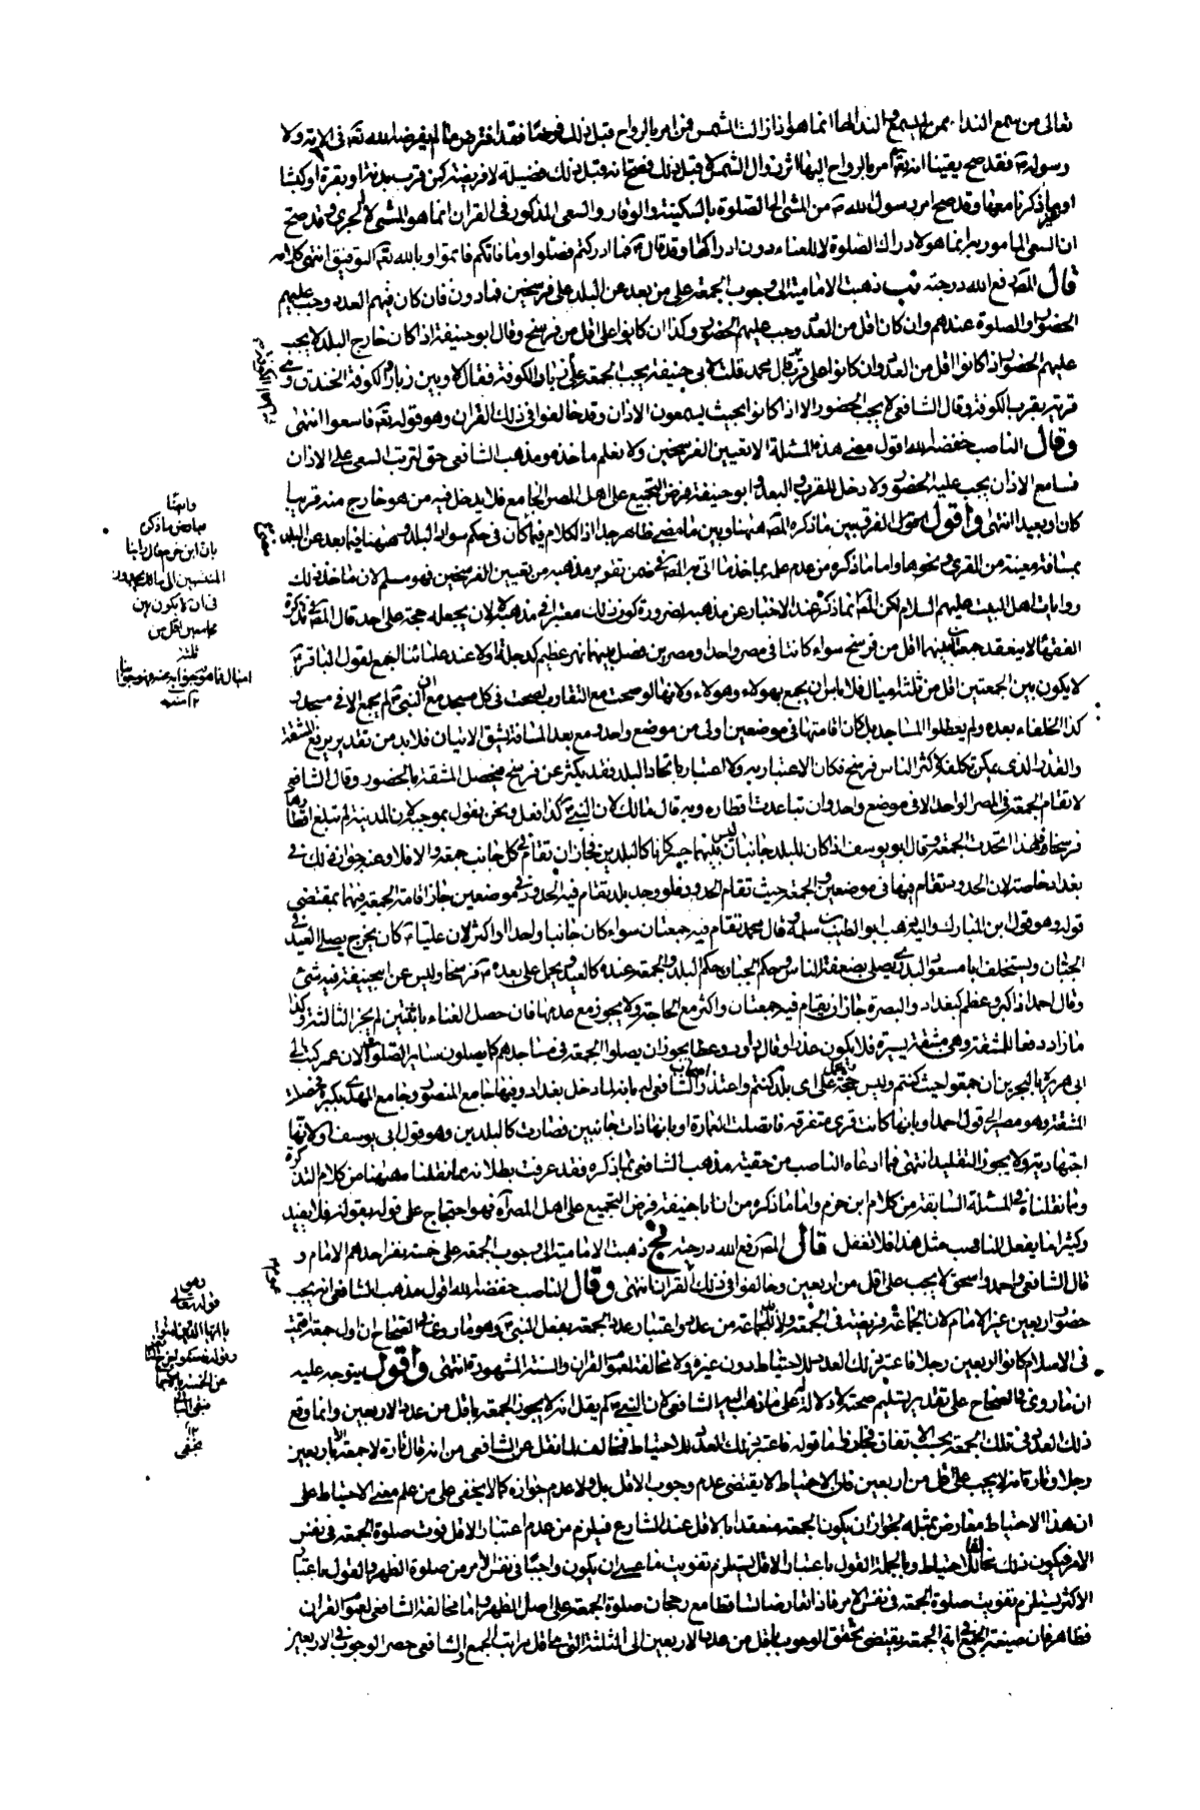 تعالى من سمع النداء ممن لم يسمع والنداء لها انما هو اذا زالت الشمس فمن امر بالرواح قبل ذلك فرضا فقد افترض ما لم يفرضه الله تعه في الآية ولا
ورسوله ص فقد صح يقينا انه تعه امر بالرواح اليها اثر زوال الشمس لا قبل ذلك فصح انه قبل ذلك فضيلة لا فريضة كمن قرب بدنة او بقرة او كبشا
او ما ذكر نا معها وقد صح امر رسول الله ص من المشي الى الصلوة بالسكينة والوقار والسعي المذكور في القران انما هو المشي لا الجري وقد صح
ان السعي المامور به انما هو لادراك الصلوة لا للعناء دون ادراكها وقد قال ص فما ادركتم فصلوا وما فاتكم فاتموا وبالله تعه التوفيق انتهى كلامه
قال المص رفع الله درجته نب ذهبت الامامية الى وجوب الجمعة على من بعد عن البلد على فرسخين فما دون فان كان فيهم العدد وجب عليهم
الحضور او الصلوة عندهم وان كان اقل من العدد وجب عليهم الحضور وكذا ان كانوا على اقل من فرسخ وقال ابو حنيفة اذا كان خارج البلد لا يجب
عليهم الحضور اذا كانوا اقل من العدد وان كانوا على قرب قال محمد قلت لابي حنيفة يجب الجمعة على اهل زبارا بالكوفة فقال لا وبين زبارا والكوفة الخندق وهي
قرية بقرب الكوفة وقال الشافعي لا يجب الحضور الا اذا كانوا بحيث يسمعون الاذان وقد خالفوا في ذلك القران وهو قوله تعه فاسعوا انتهى
وقال الناصب خفضه الله اقول معنى هذه المسئلة الا تعيين الفرسخين ولا نعلم ماخذه ومذهب الشافعي حق لترتب السعي على الاذان
فسامع الاذان يجب عليه الحضور ولا دخل للقرب والبعد وابو حنيفة فرض التجميع على اهل المصر الجامع فلا يدخل فيه من هو خارج منه قريبا
كان او بعيدا انتهى واقول الفرق بين ما ذكره المص ههنا وبين ما مضى ظاهر جدا اذ الكلام فيما كان في حكم سواد البلد وههنا فيما بعد عن البلد
بمسافة معينة من القرى ونحوها واما ما ذكره من عدم علمه بماخذ ما اتى به المص في ضمن تقرير مذهبه من تعيين الفرسخين فهو مسلم لان ماخذ ذلك
روايات اهل البيت عليهم السلام لكن المص انما ذكره عند الاخبار عن مذهبه لضرورة كون ذلك معتبرا في مذهبه لا لان يجعله حجة على احد قال المص في تذكرة
الفقهاء لا ينعقد جمعتان بينهما اقل من فرسخ سواء كانتا في مصر واحد او مصرين فصل بينهما نهر عظيم كدجلة او لا عند علمائنا اجمع لقول الباقر ع
لا يكون بين الجمعتين اقل من ثلثة اميال فلا باس ان يجمع بهولاء وهولاء ولانها لو صحت مع التقارب لصحت في كل مسجد مع ان النبي ص لم يجمع الا في مسجد و
كذا الخلفاء بعده ولم يعطلوا المساجد بل كان اقامتها في موضعين اولى من موضع واحد ومع بعد المسافة يشق الاتيان فلا بد من تقدير يرفع المشقة
والقدر الذي يمكن تكلفه لاكثر الناس فرسخ فكان الاعتبار به ولا اعتبار باتحاد البلد فقد يكثر عن فرسخ فيحصل المشقة بالحضور وقال الشافعي
لا تقام الجمعة في المصر الواحد الا في موضع واحد وان تباعدت اقطاره وبه قال مالك لان النبي ص كذا فعل ونحن نقول بموجبه لان المدينة لم تبلغ اقطارها
فرسخا فلهذا اتحدت الجمعة وقال ابو يوسف اذا كان للبلد جانبان ليس بينهما جسر كانا كالبلدين فجاز ان تقام في كل جانب جمعة والا فلا وعنه جواز ذلك في
بغداد خاصة لان الحدود تقام فيها في موضعين والجمعة حيث تقام الحدود فلو وجد بلد يقام فيه الحدود في موضعين جاز اقامة الجمعة فيهما بمقتضى
قوله وهو قول ابن المبارك واليه ذهب ابو الطيب بن سلمة وقال محمد تقام فيه جمعتان سواء كان جانبا واحدا او اكثر لان عليا ع كان يخرج يصلي العيد في
الجبان ويستخلف ابا مسعود البدري يصلي بضعفة الناس وحكم الجبان حكم البلد والجمعة عنده كالعيد ويحمل على بعده ع فرسخا وليس عن ابي حنيفة فيه شيء
وقال احمد اذا كبر وعظم كبغداد والبصرة جاز ان يقام فيه جمعتان واكثر مع الحاجة ولا يجوز مع عدمها فان حصل الغناء باثنتين لم يجز الثالثة وكذا
ما زاد دفعا للمشقة وهي مشقة يسيرة فلا يكون عذرا وقال داود وعطا يجوز ان يصلوا الجمعة في مساجدهم كما يصلون سائر الصلوات لان عمر كتب الى
ابي هريرة بالبحرين ان جمعوا حيث كنتم وليس حجة على اي بلد كنتم واعتذر اصحاب الشافعي له بانه لما دخل بغداد وفيها جامع المنصور وجامع المهدي بكبره فحصلت
المشقة وهو مصير الى قول احمد او بانها كانت قرى متفرقة فاتصلت العمارة او بانها ذات جانبين فصارت كالبلدين وهو قول ابي يوسف او لانها
اجتهادية ولا يجوز التقليد انتهى فما ادعاه الناصب من حقية مذهب الشافعي بما ذكره فقد عرفت بطلانه مما نقلنا ههنا من كلام التذكرة
ومما نقلناه في المسئلة السابقة من كلام ابن حزم واما ما ذكره من ان ابا حنيفة فرض التجميع على اهل المصر آه فهو احتجاج على قوله بقوله فلا يفيد
وكثيرا ما يفعل الناصب مثل هذا فلا تغفل قال المص رفع الله درجته نج ذهبت الامامية الى وجوب الجمعة على خمسة نفر احدهم الامام و
قال الشافعي واحمد واسحق لا يجب على اقل من اربعين وخالفوا في ذلك القران انتهى وقال الناصب خفضه الله اقول مذهب الشافعي انه يجب
حضور اربعين غير الامام لان الجماعة فريضة في الجمعة ولا بد للجماعة من عدد واعتبار عدد الجمعة بفعل النبي ص وهو ما روي في الصحاح ان اول جمعة اقيمت
في الاسلام كانوا اربعين رجلا فاعتبر ذلك العدد للاحتياط دون غيره ولا مخالفة لنص القران والسنة المشهورة انتهى واقول يتوجه عليه
ان ما روي في الصحاح على تقدير تسليم صحته لا دلالة له على ما ذهب اليه الشافعي لان النبي ص لم يقل انه لا يجوز الجمعة باقل من عدد الاربعين وانما وقع
ذلك العدد في تلك الجمعة بحسب الاتفاق واما قوله فاعتبر ذلك العدد للاحتياط فمخالف لما نقل عن الشافعي من انه قال تارة لا جمعة الا باربعين
رجلا وتارة انه لا يجب على اقل من اربعين فان الاحتياط لا يقتضي عدم وجوب الاقل بل ولا عدم جوازه كما لا يخفى على من علم معنى الاحتياط على
ان هذا الاحتياط معارض بمثله لجواز ان يكون الجمعة منعقدا بالاقل عند الشارع فيلزم من عدم اعتبار الاقل فوت صلوة الجمعة في نفس
الامر فيكون ذلك مخالفا للاحتياط وبالجملة القول باعتبار الاقل يستلزم تفويت ما عسى ان يكون واجبا في نفس الامر من صلوة الظهر والقول باعتبار
الاكثر يستلزم تفويت صلوة الجمعة في نفس الامر فاذا تعارضا تساقطا مع رجحان صلوة الجمعة على اصل الظهر واما مخالفة الشافعي لنص القران
فظاهر فان صيغة الجمع في اية الجمعة يقتضي تحقق الوجوب باقل من عدد الاربعين الى الثلثة التي هي اقل مراتب الجمع والشافعي حصر الوجوب في الاربعين
وايضا
معارض بما ذكره
بان ابن حزم قال راينا
المنتسبين الى مالك يحدون
في ان لا يكون بين
الجامعين اقل من
ثلثة
اميال فما هو جوابه عنه فهو جوابنا
١٢ منه
وهي
قوله تعالى
يا ايها الذين امنوا
١٢